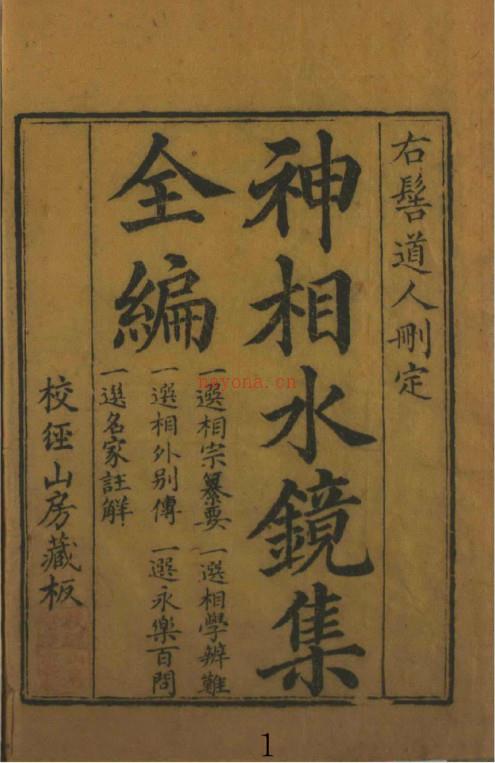 右髻道人刪定
神相水鏡集
全編
一選相宗纂要 一選相學辨難
一選相外別傳 一選永樂百問
一選名家註解
校經山房藏板
nayona.cn
1